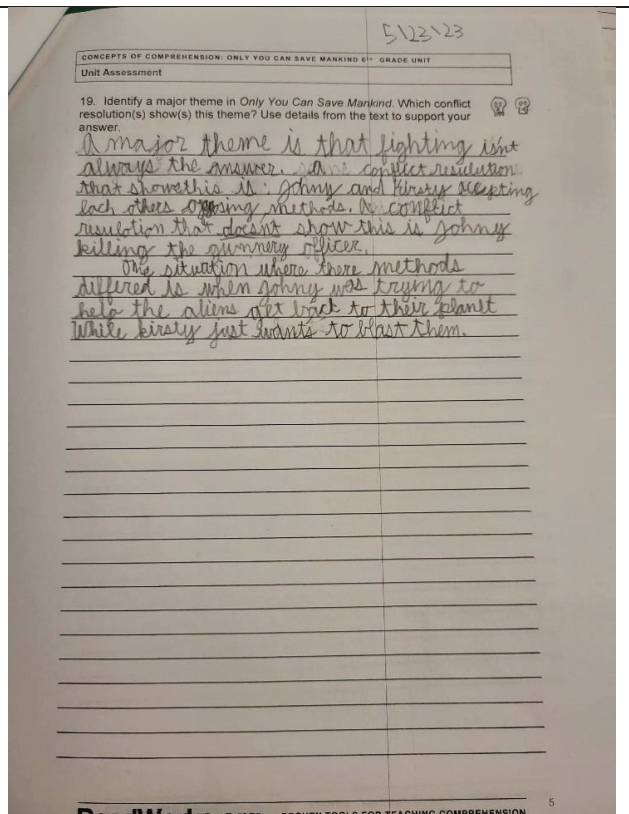 5\23\23
CONCEPTS OF COMPREHENSION: ONLY YOU CAN SAVE MANKIND 6TH GRADE UNIT
Unit Assessment
19. Identify a major theme in Only You Can Save Mankind. Which conflict
resolution(s) show(s) this theme? Use details from the text to support your
answer.
A major theme is that fighting isnt
always the answer. A conflict resulution
that showethis is: Johny and Kirsty accepting
each others opposing methods. A conflict
resulotion that doesnt show this is Johny
killing the gunnery officer.
One situation where there methods
differed is when Johny was trying to
help the aliens get back to their planet
While kirsty just wants to blast them.
5
PROVEN TOOLS FOR TEACHING COMPREHENSION